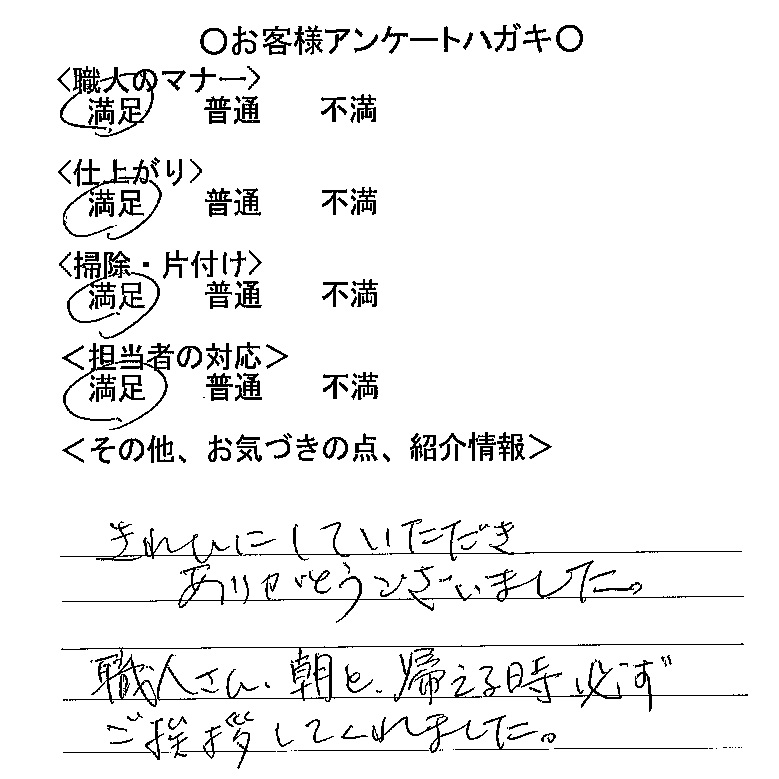 〇お客様アンケートハガキ〇
<職人のマナー>
満足 普通 不満
<仕上がり>
満足 普通 不満
<掃除・片付け>
満足 普通 不満
＜担当者の対応＞
満足 普通 不満
＜その他、お気づきの点、紹介情報＞
きれいにしていただき
ありがとうございました。
職人さん、朝と、帰える時必ず
ご挨拶してくれました。